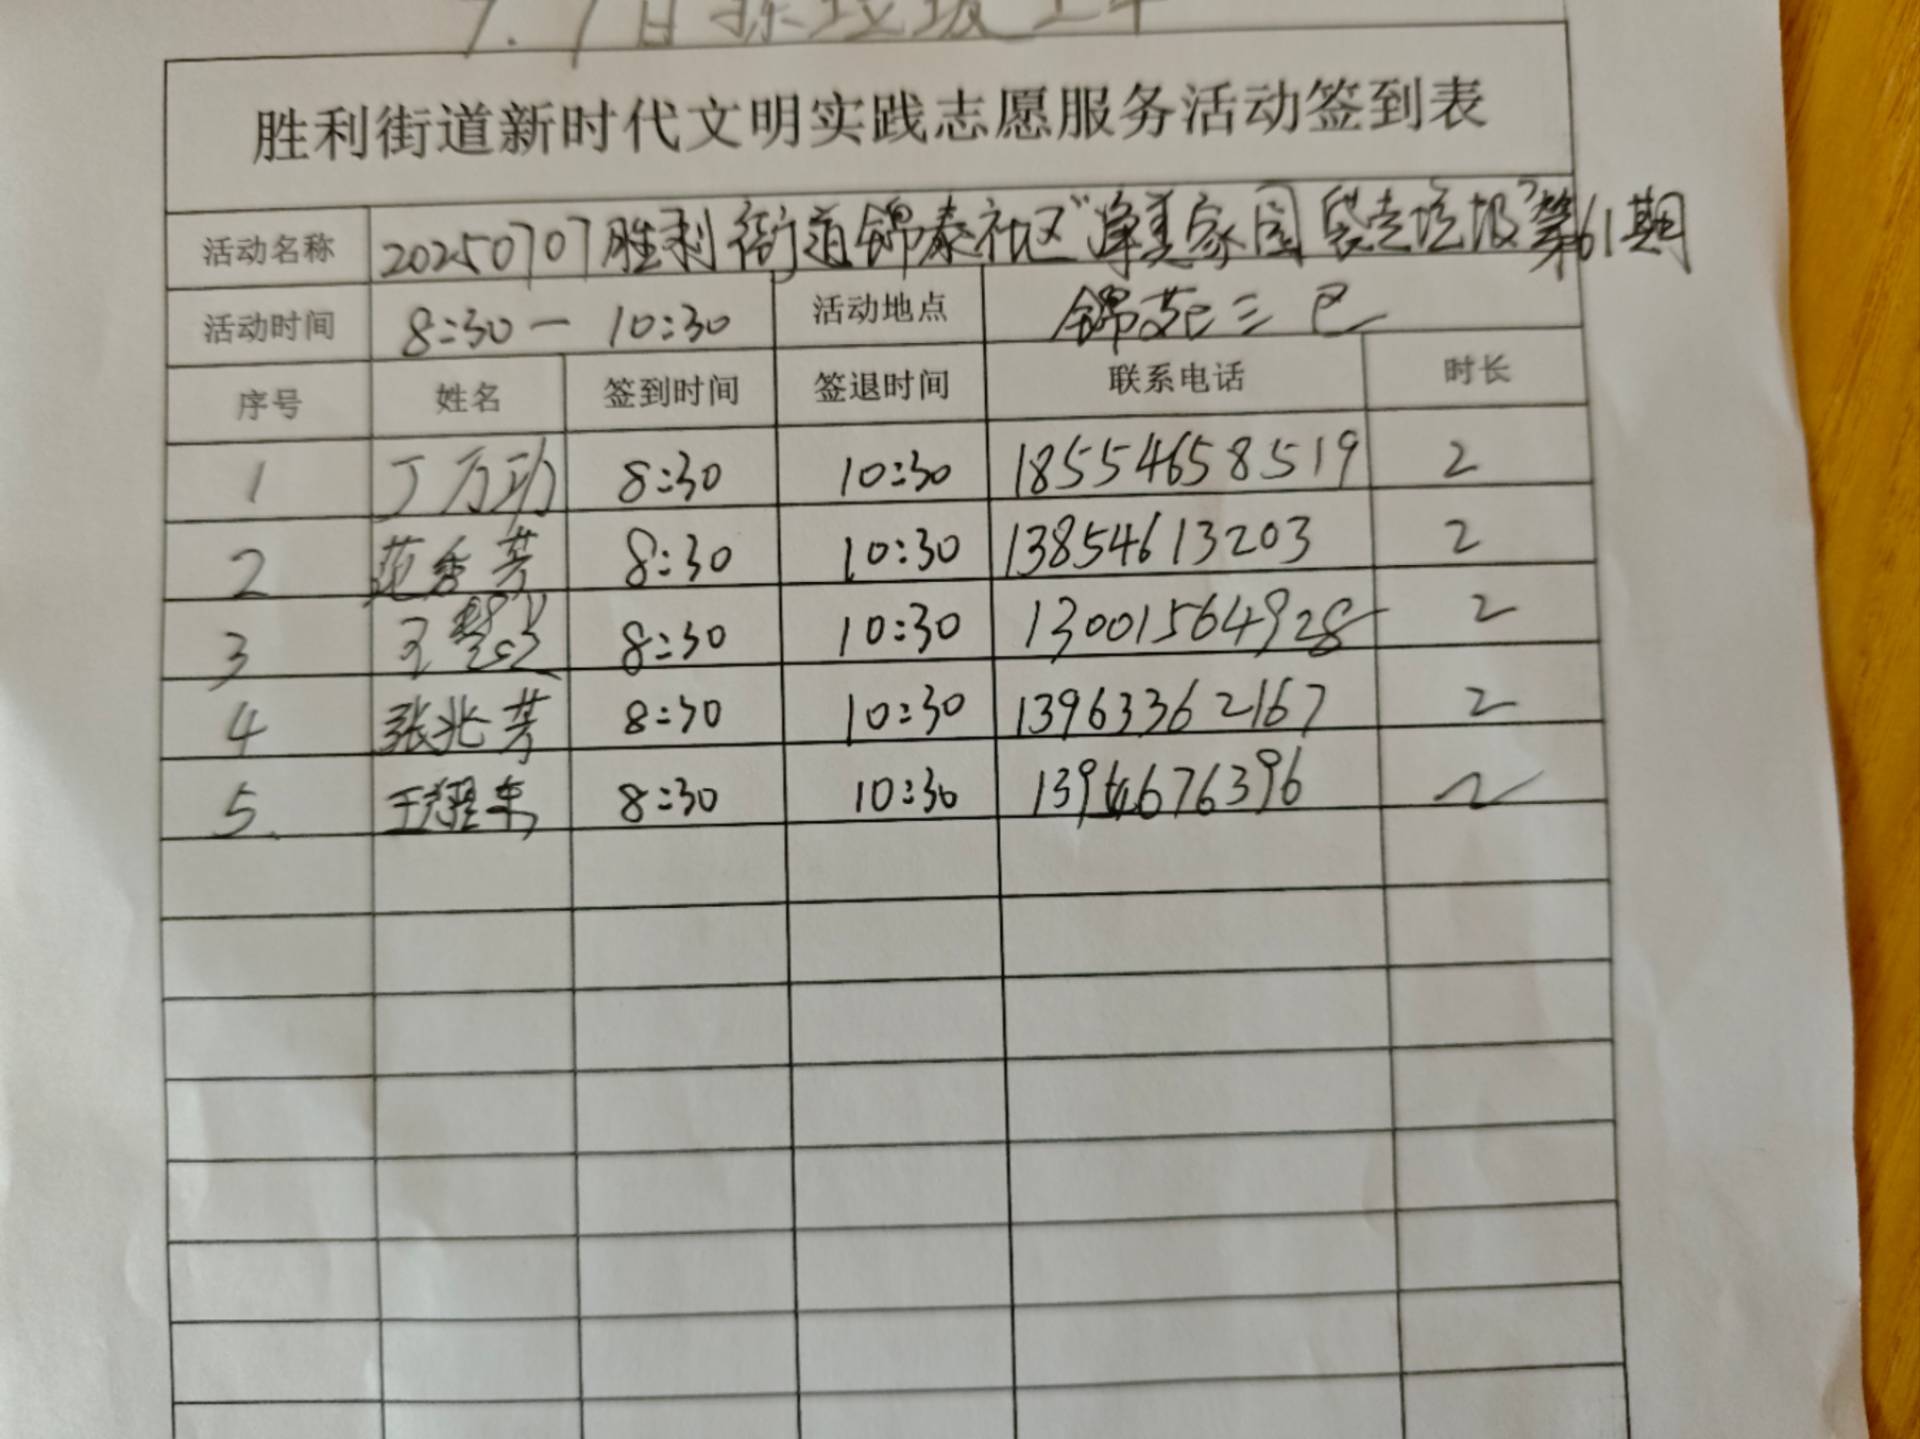 7.7日捡垃圾上午
胜利街道新时代文明实践志愿服务活动签到表
活动名称 20250707胜利街道锦泰社区“净美家园 袋走垃圾”第61期
活动时间 8:30一10:30 活动地点 锦苑三区
序号 姓名 签到时间 签退时间 联系电话 时长
1 丁万功 8:30 10:30 18554658519 2
2 范秀芳 8:30 10:30 13854613203 2
3 王慧 8:30 10:30 13001564928 2
4 张兆芳 8:30 10:30 13963362167 2
5. 王耀东 8:30 10:30 2